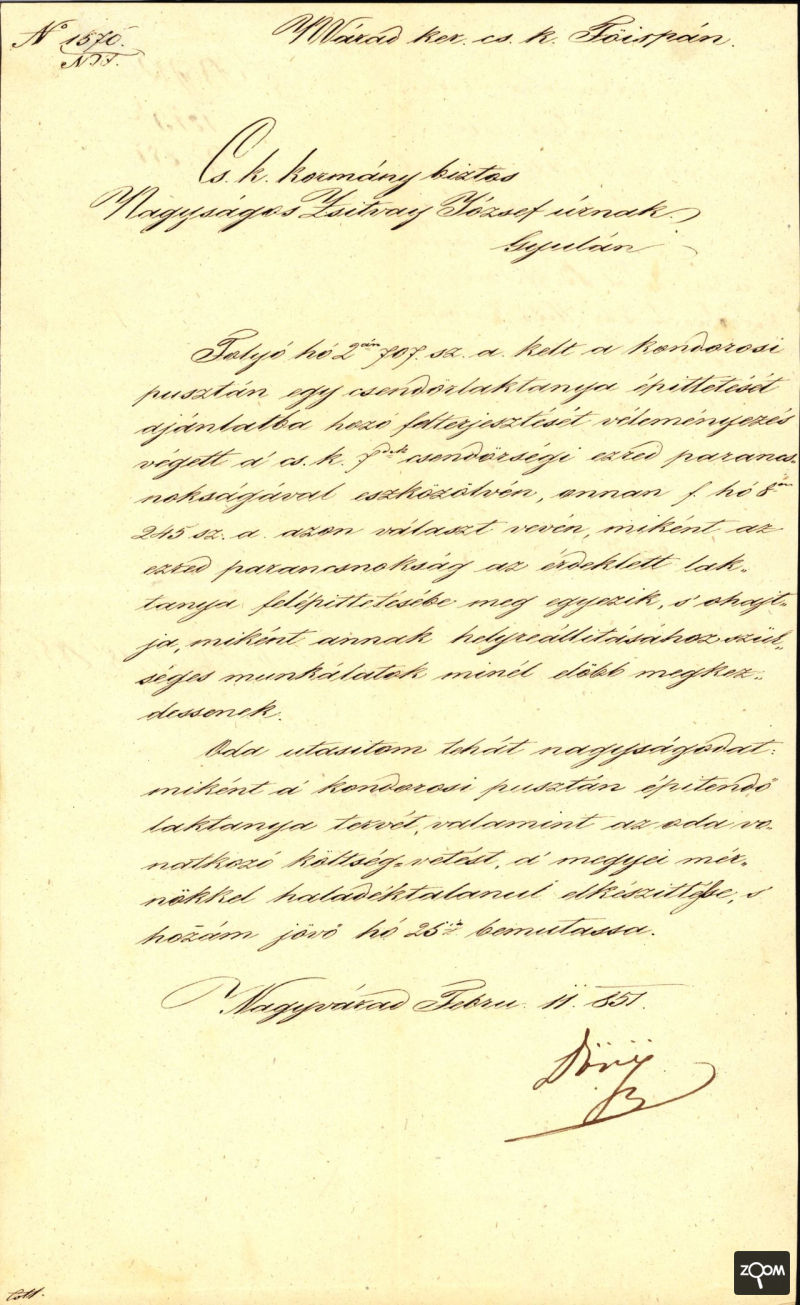 Nº 1570.
Várad ker. cs. k. Főispán.
Cs. k. kormány biztos
Nagyságos Zsitvay József úrnak
Gyulán
Folyó hó 2án 707. sz. a. kelt a kondorosi
pusztán egy csendőrlaktanya épittetését
ajánlatba hozó felterjesztését véleményezés
végett a' cs. k. 7dik csendőrségi ezred parancs-
nokságával eszközölvén, onnan f. hó 8án
245 sz. a. azon választ vevén, miként az
ezred parancsnokság az érdeklett lak-
tanya felépittetésébe meg egyezik, s' ohajt-
ja, miként annak helyreállitásához szük-
séges munkálatok minél előbb megkez-
dessenek.
Oda utasitom tehát nagyságodat:
miként a' kondorosi pusztán épitendő
laktanya tervét, valamint az oda vo-
natkozó költség-vetést, a' megyei mér-
nökkel haladéktalanul elkészittesse, s
hozám jövő hó 25ig bemutassa.
Nagyvárad Febru. 11. 851.
Döry
ZOOM